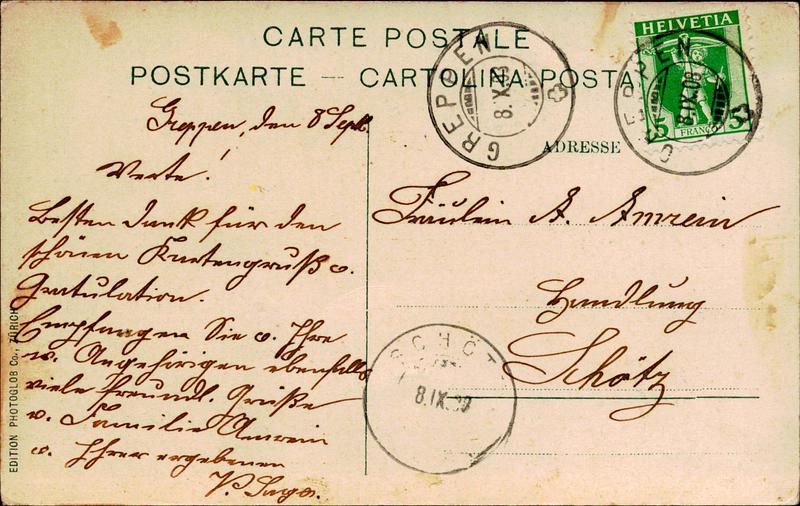 CARTE POSTALE
POSTKARTE — CARTOLINA POSTALE
HELVETIA
5 FRANCO 5
GREPPEN
8.IX.08
GREPPEN
8.IX.08
ADRESSE
Greppen, den 8 Sept.
Werte!
Besten Dank für den
schönen Kartengruß
Gratulation.
Empfangen Sie Ihre
Angehörigen ebenfalls
viele freundl. Grüße
v. Familie Amrein
Ihrer ergebenen
Fräulein A. Amrein
Handlung
Schötz
SCHÖTZ
8.IX.08
EDITION PHOTOGLOB Co., ZÜRICH